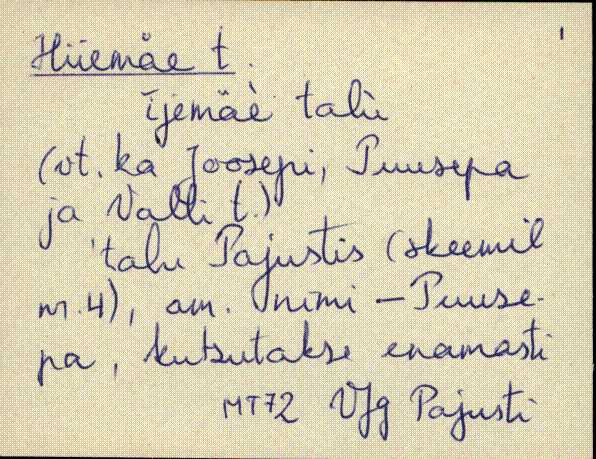 1
Hiiemäe t.
ījemäè talù
(vt. ka Joosepi, Puusepa
ja Valli t.)
'talu Pajustis (skeemil
nr. 4), am. nimi – Puuse-
pa, kutsutakse enamasti
MT72 VJg Pajusti